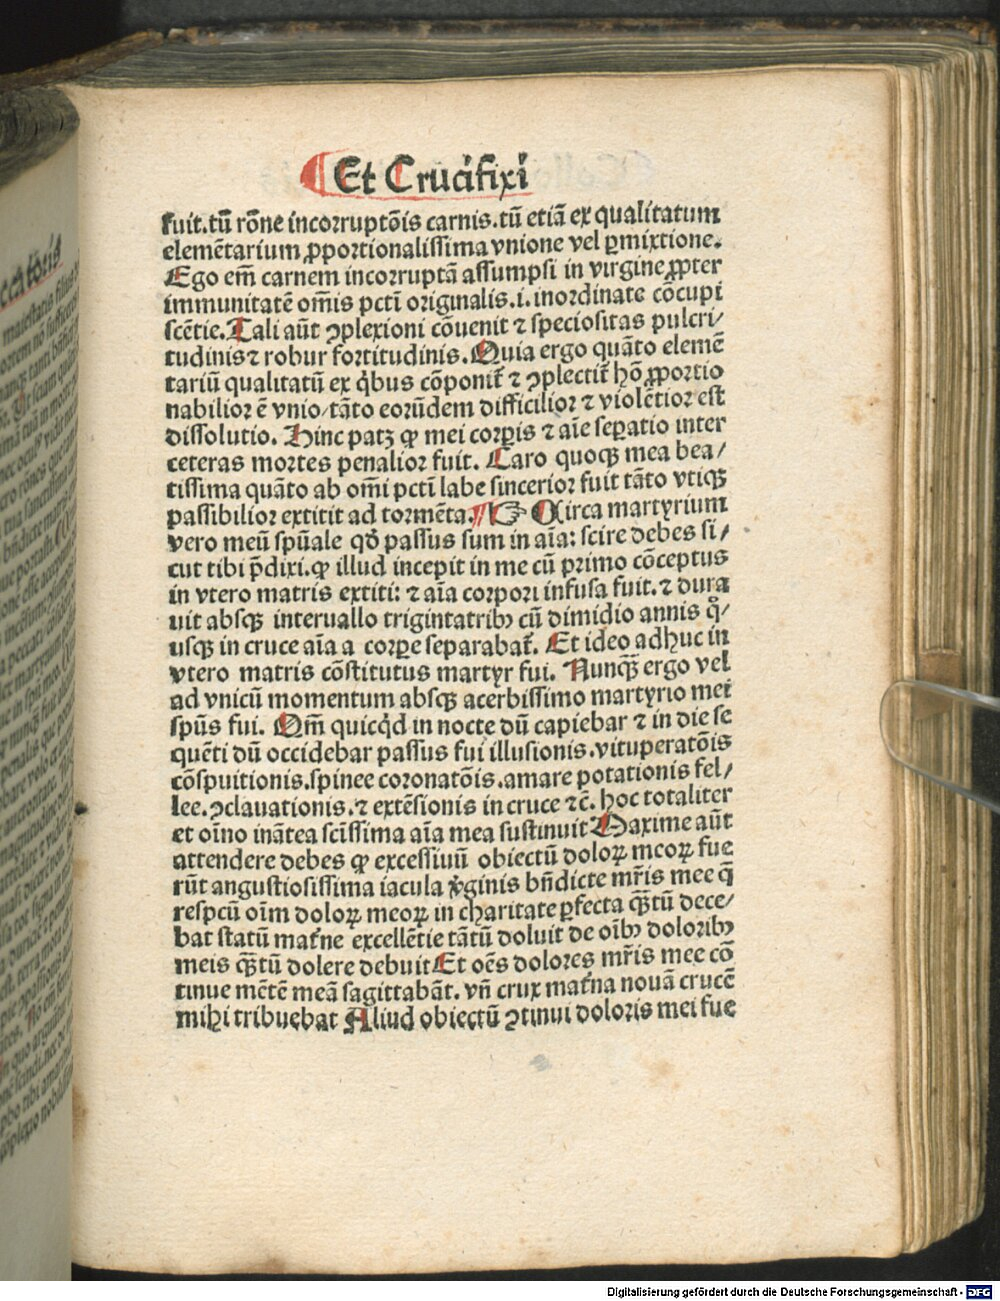 ¶ Et Crucifixi
fuit. tū rōne incorruptōis carnis. tū etiā ex qualitatum
elemētarium ꝓportionalissima vnione vel ꝑmixtione.
Ego em̄ carnem incorruptā assumpsi in virgine ꝓpter
immunitatē om̄is pcti originalis .i. inordinate cōcupi
scētie. Tali aūt ꝯplexioni cōuenit ⁊ speciositas pulcri/
tudinis ⁊ robur fortitudinis. Quia ergo quāto elemē
tariū qualitatū ex q̇bus cōponit᷑ ⁊ ꝯplectit᷑ hō ꝓportio
nabilior ē vnio/ tāto eorūdem difficilior ⁊ violētior est
dissolutio. Hinc patꝫ ꝙ mei corꝑis ⁊ aīe seꝑatio inter
ceteras mortes penalior fuit. Caro quoqꝫ mea bea/
tissima quāto ab om̄i pcti labe sincerior fuit tāto vtiqꝫ
passibilior extitit ad tormēta. ¶ ☞ Circa martyrium
vero meū spūale qd̄ passus sum in aīa: scire debes si/
cut tibi p̄dixi. ꝙ illud incepit in me cū primo cōceptus
in vtero matris extiti: ⁊ aīa corpori infusa fuit. ⁊ dura
uit absqꝫ interuallo trigintatribꝫ cū dimidio annis qͦ/
usqꝫ in cruce aīa a corꝑe separabat᷑. Et ideo adhuc in
vtero matris cōstitutus martyr fui. Nunqꝫ̄ ergo vel
ad vnicū momentum absqꝫ acerbissimo martyrio mei
spūs fui. Om̄ quicq̇d in nocte dū capiebar ⁊ in die se
quēti dū occidebar passus fui illusionis. vituperatōis
cōspuitionis. spinee coronatōis. amare potationis fel/
lee. ꝯclauationis. ⁊ extēsionis in cruce ⁊c̄. hoc totaliter
et oīno inātea scīssima aīa mea sustinuit Maxime aūt
attendere debes ꝙ excessiuū obiectū doloꝝ meoꝝ fue
rūt angustiosissima iacula v̇ginis bn̄dicte mr̄is mee q̄
respcū oīm doloꝝ meoꝝ in charitate ꝑfecta qꝫ̄tū dece/
bat statū mat᷑ne excellētie tātū doluit de oībꝫ doloribꝫ
meis qꝫ̄tū dolere debuit Et oēs dolores mr̄is mee cō
tinue mētē meā sagittabāt. vn̄ crux mat᷑na nouā crucē
mihi tribuebat Aliud obiectū ꝯtinui doloris mei fue
Digitalisierung gefördert durch die Deutsche Forschungsgemeinschaft - DFG